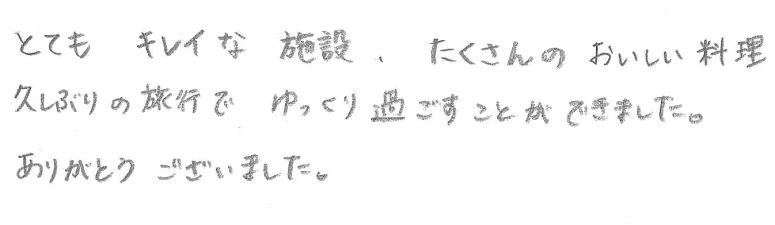 とても キレイな 施設、たくさんの おいしい 料理
久しぶりの旅行で ゆっくり過ごすことができました。
ありがとう ございました。